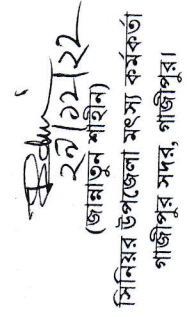 ২৯/১২/২২
(জান্নাতুন শাহীন)
সিনিয়র উপজেলা মৎস্য কর্মকর্তা
গাজীপুর সদর, গাজীপুর।